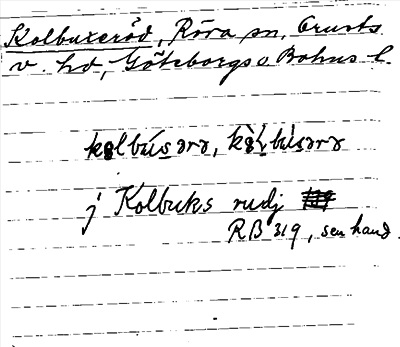 Kolbuxeröd, Röra sn, Orusts
v. hd, Göteborgs o. Bohus l.
kolbúsərə, kòlbùsərə
j Kolbuks rudj
RB 319, sen hand.